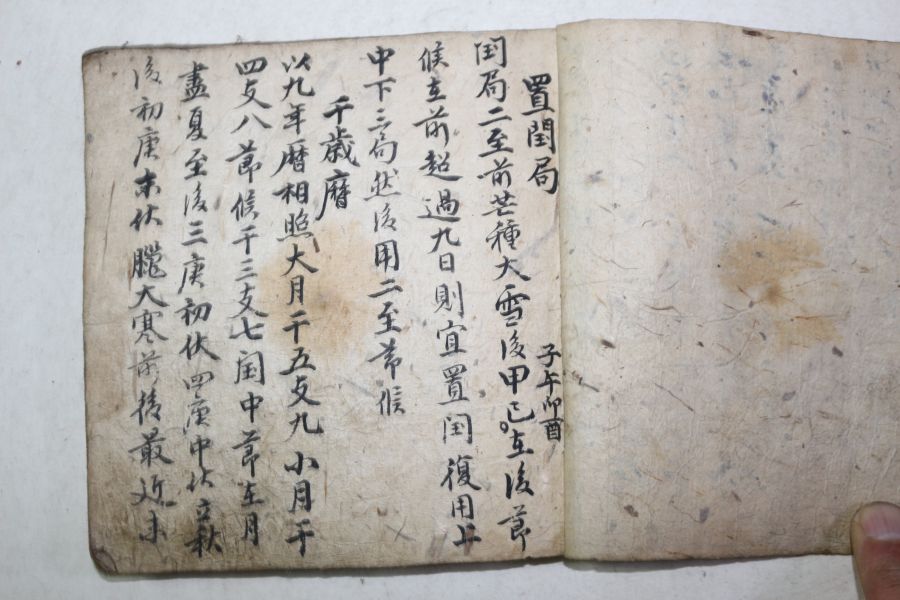 置閏局
閏局二至前芒種大雪後甲己在後節
子午卯酉
候在前超過九日則宜置閏復用上
中下三局然後用二至節候
千歲曆
以九年曆相照大月干五支九小月干
四支八節候干三支七閏中節在月
盡夏至後三庚初伏四庚中伏立秋
後初庚末伏臘大寒前後最近未